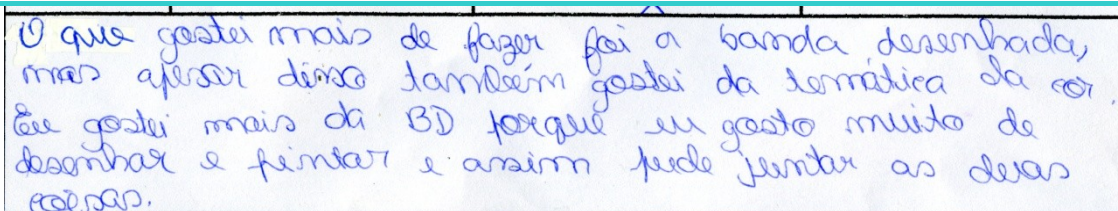 O que gostei mais de fazer foi a banda desenhada,
mas apesar disso também gostei da temática da cor.
Eu gostei mais da BD porque eu gosto muito de
desenhar e pintar e assim pude juntar as duas
coisas.